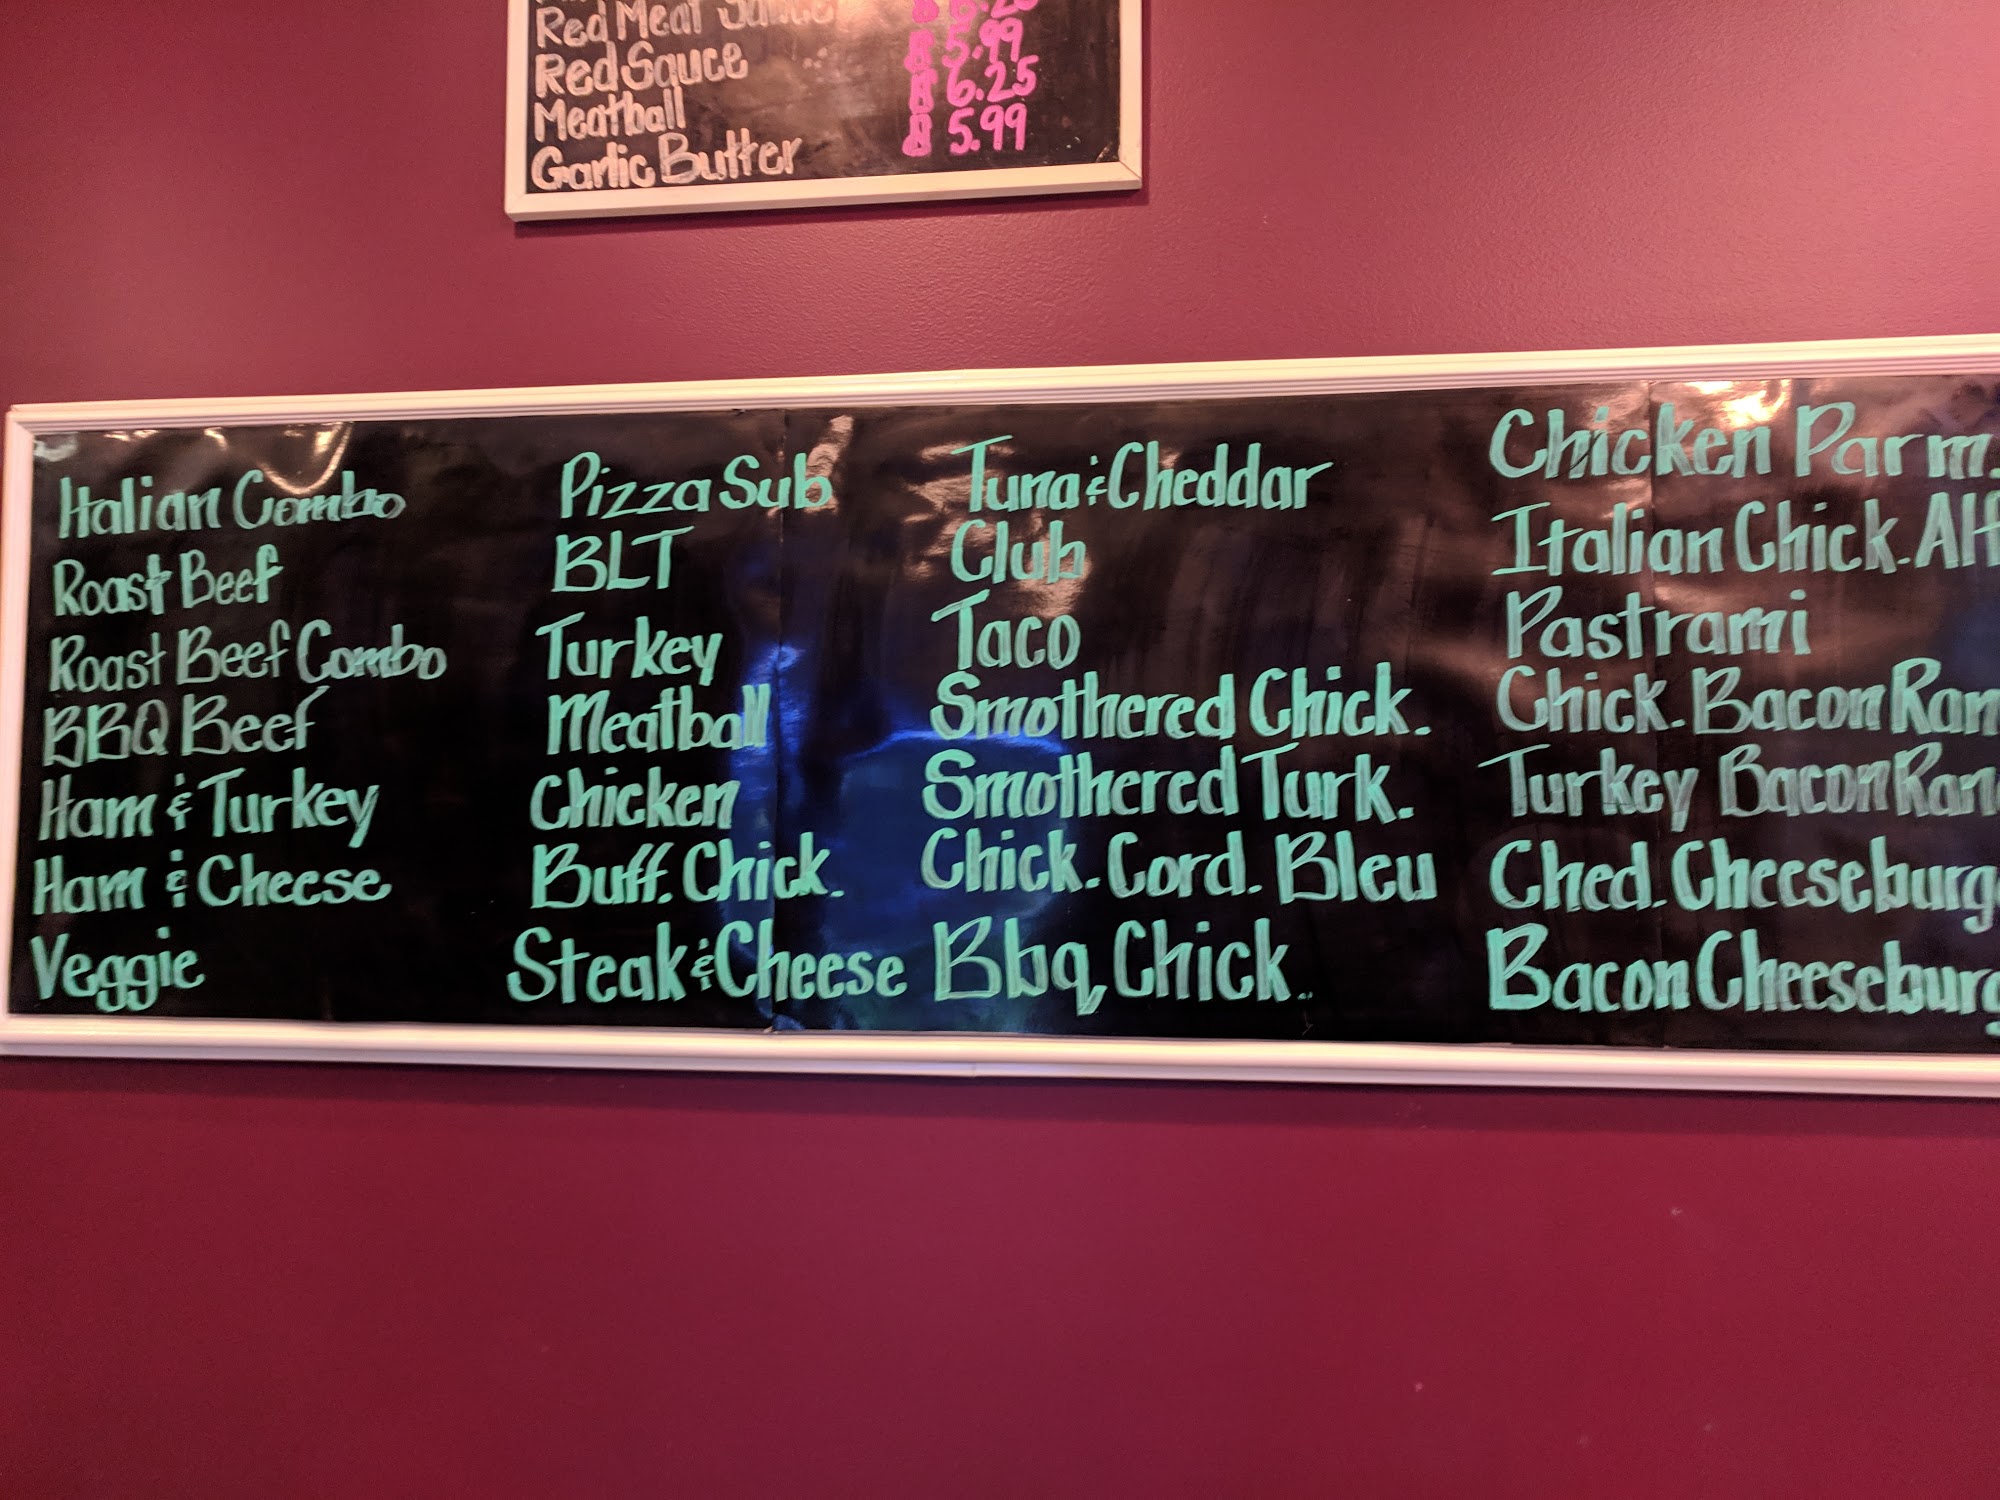 Red Meat Sauce
Red Sauce 5.99
Meatball 6.25
Garlic Butter 5.99
Italian Combo
Roast Beef
Roast Beef Combo
BBQ Beef
Ham & Turkey
Ham & Cheese
Veggie
Pizza Sub
BLT
Turkey
Meatball
Chicken
Buff. Chick.
Steak & Cheese
Tuna & Cheddar
Club
Taco
Smothered Chick.
Smothered Turk.
Chick. Cord. Bleu
Bbq Chick.
Chicken Parm.
Italian Chick. Alf
Pastrami
Chick. Bacon Ran
Turkey Bacon Ran
Ched. Cheeseburg
Bacon Cheeseburg